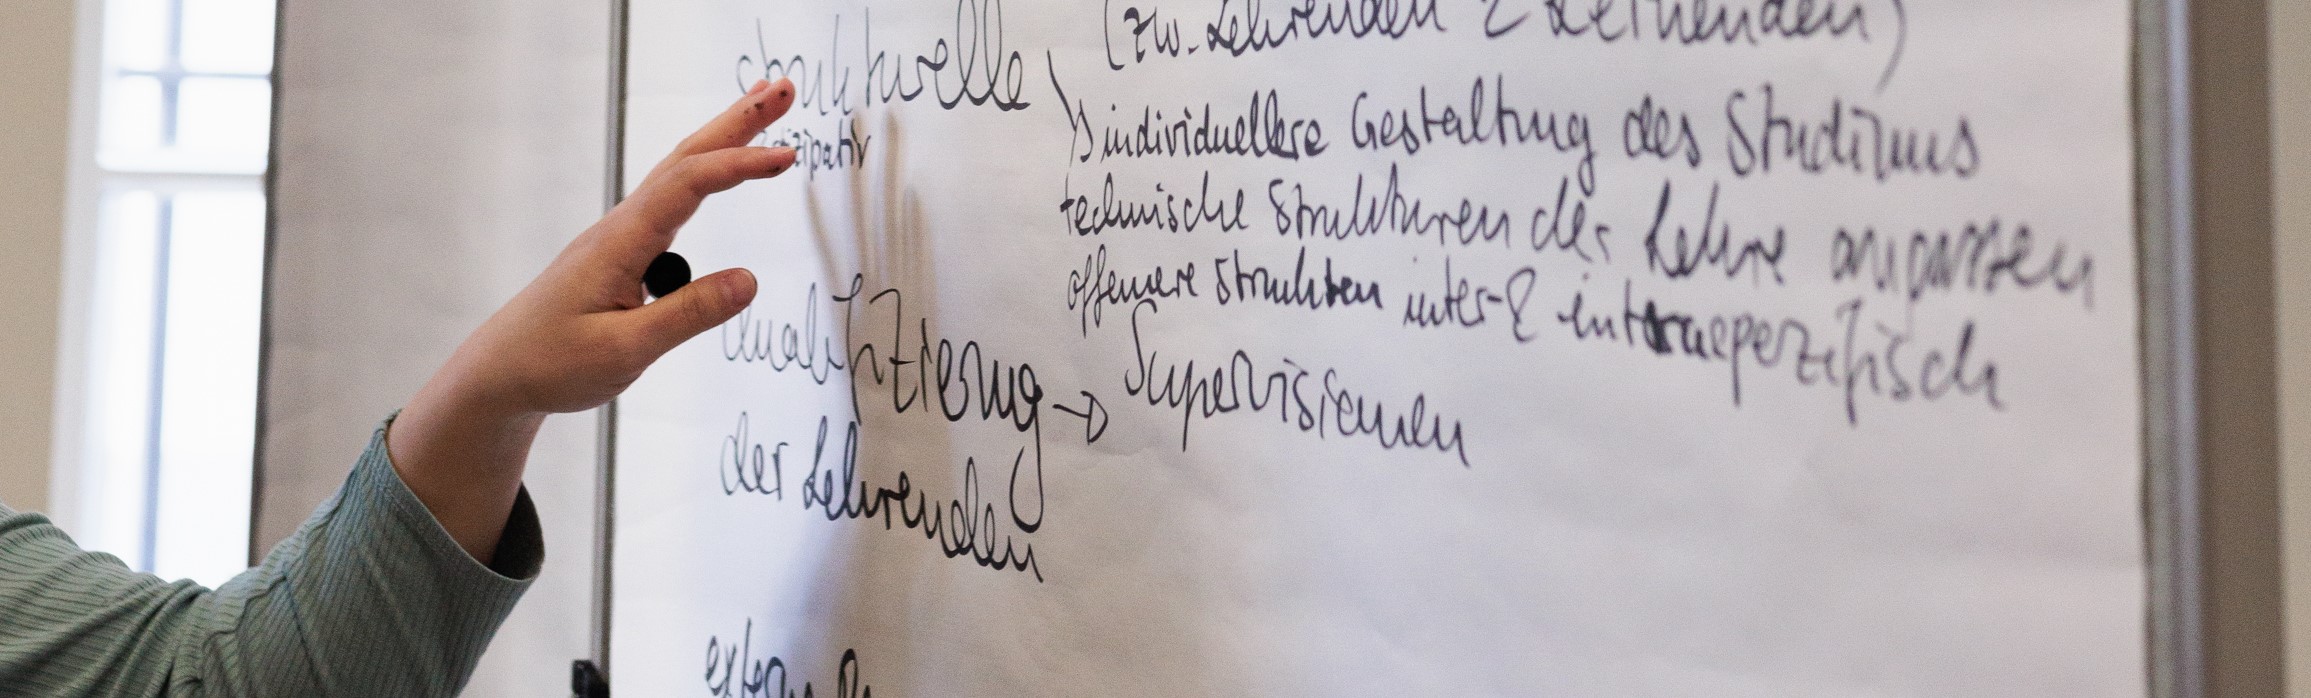 (zw. Lehrenden & Lernenden)
strukturelle
partizipativ
individuellere Gestaltung des Studiums
technische Strukturen der Lehre anpassen
offenere Strukturen inter- & intraspezifisch
Qualifizierung → Supervisionen
der Lehrenden